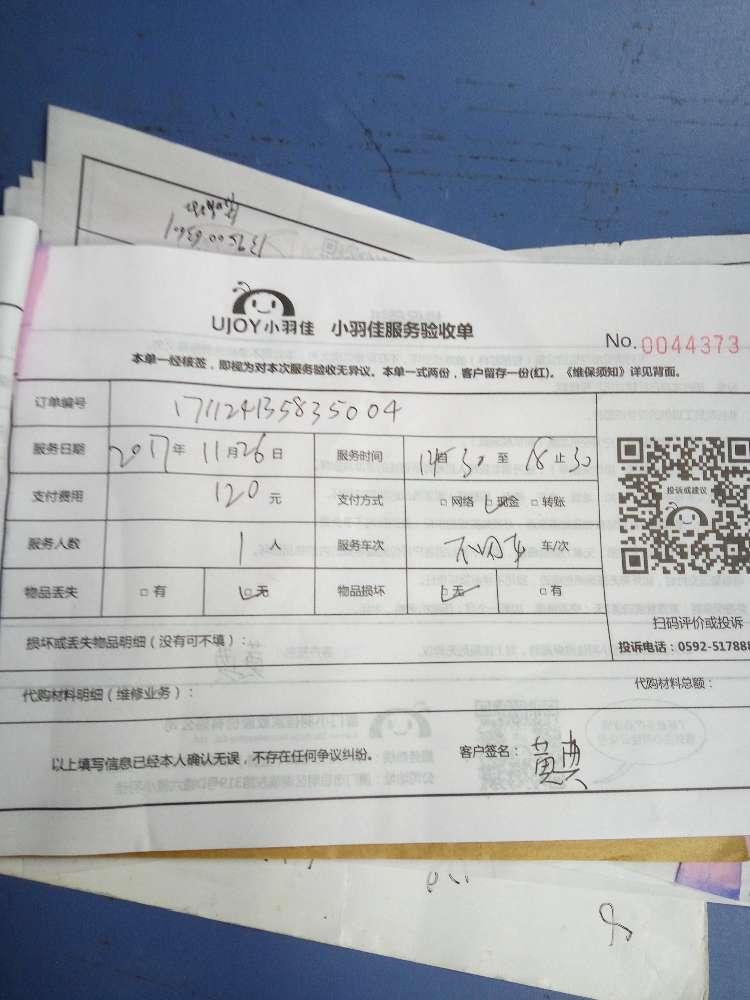 13950063601
UJOY小羽佳 小羽佳服务验收单
No. 0044373
本单一经核签，即视为对本次服务验收无异议。本单一式两份，客户留存一份(红)。《维保须知》详见背面。
订单编号 171124135835004
服务日期 2017年 11月26日 服务时间 14:30 至 18止30
支付费用 120元 支付方式 □网络 ☑现金 □转账
投诉或建议
服务人数 1人 服务车次 车/次
物品丢失 □有 ☑无 物品损坏 ☑无 □有
扫码评价或投诉
损坏或丢失物品明细（没有可不填）：
投诉电话：0592-517888
代购材料明细（维修业务）：
代购材料总额：
以上填写信息已经本人确认无误，不存在任何争议纠纷。 客户签名：